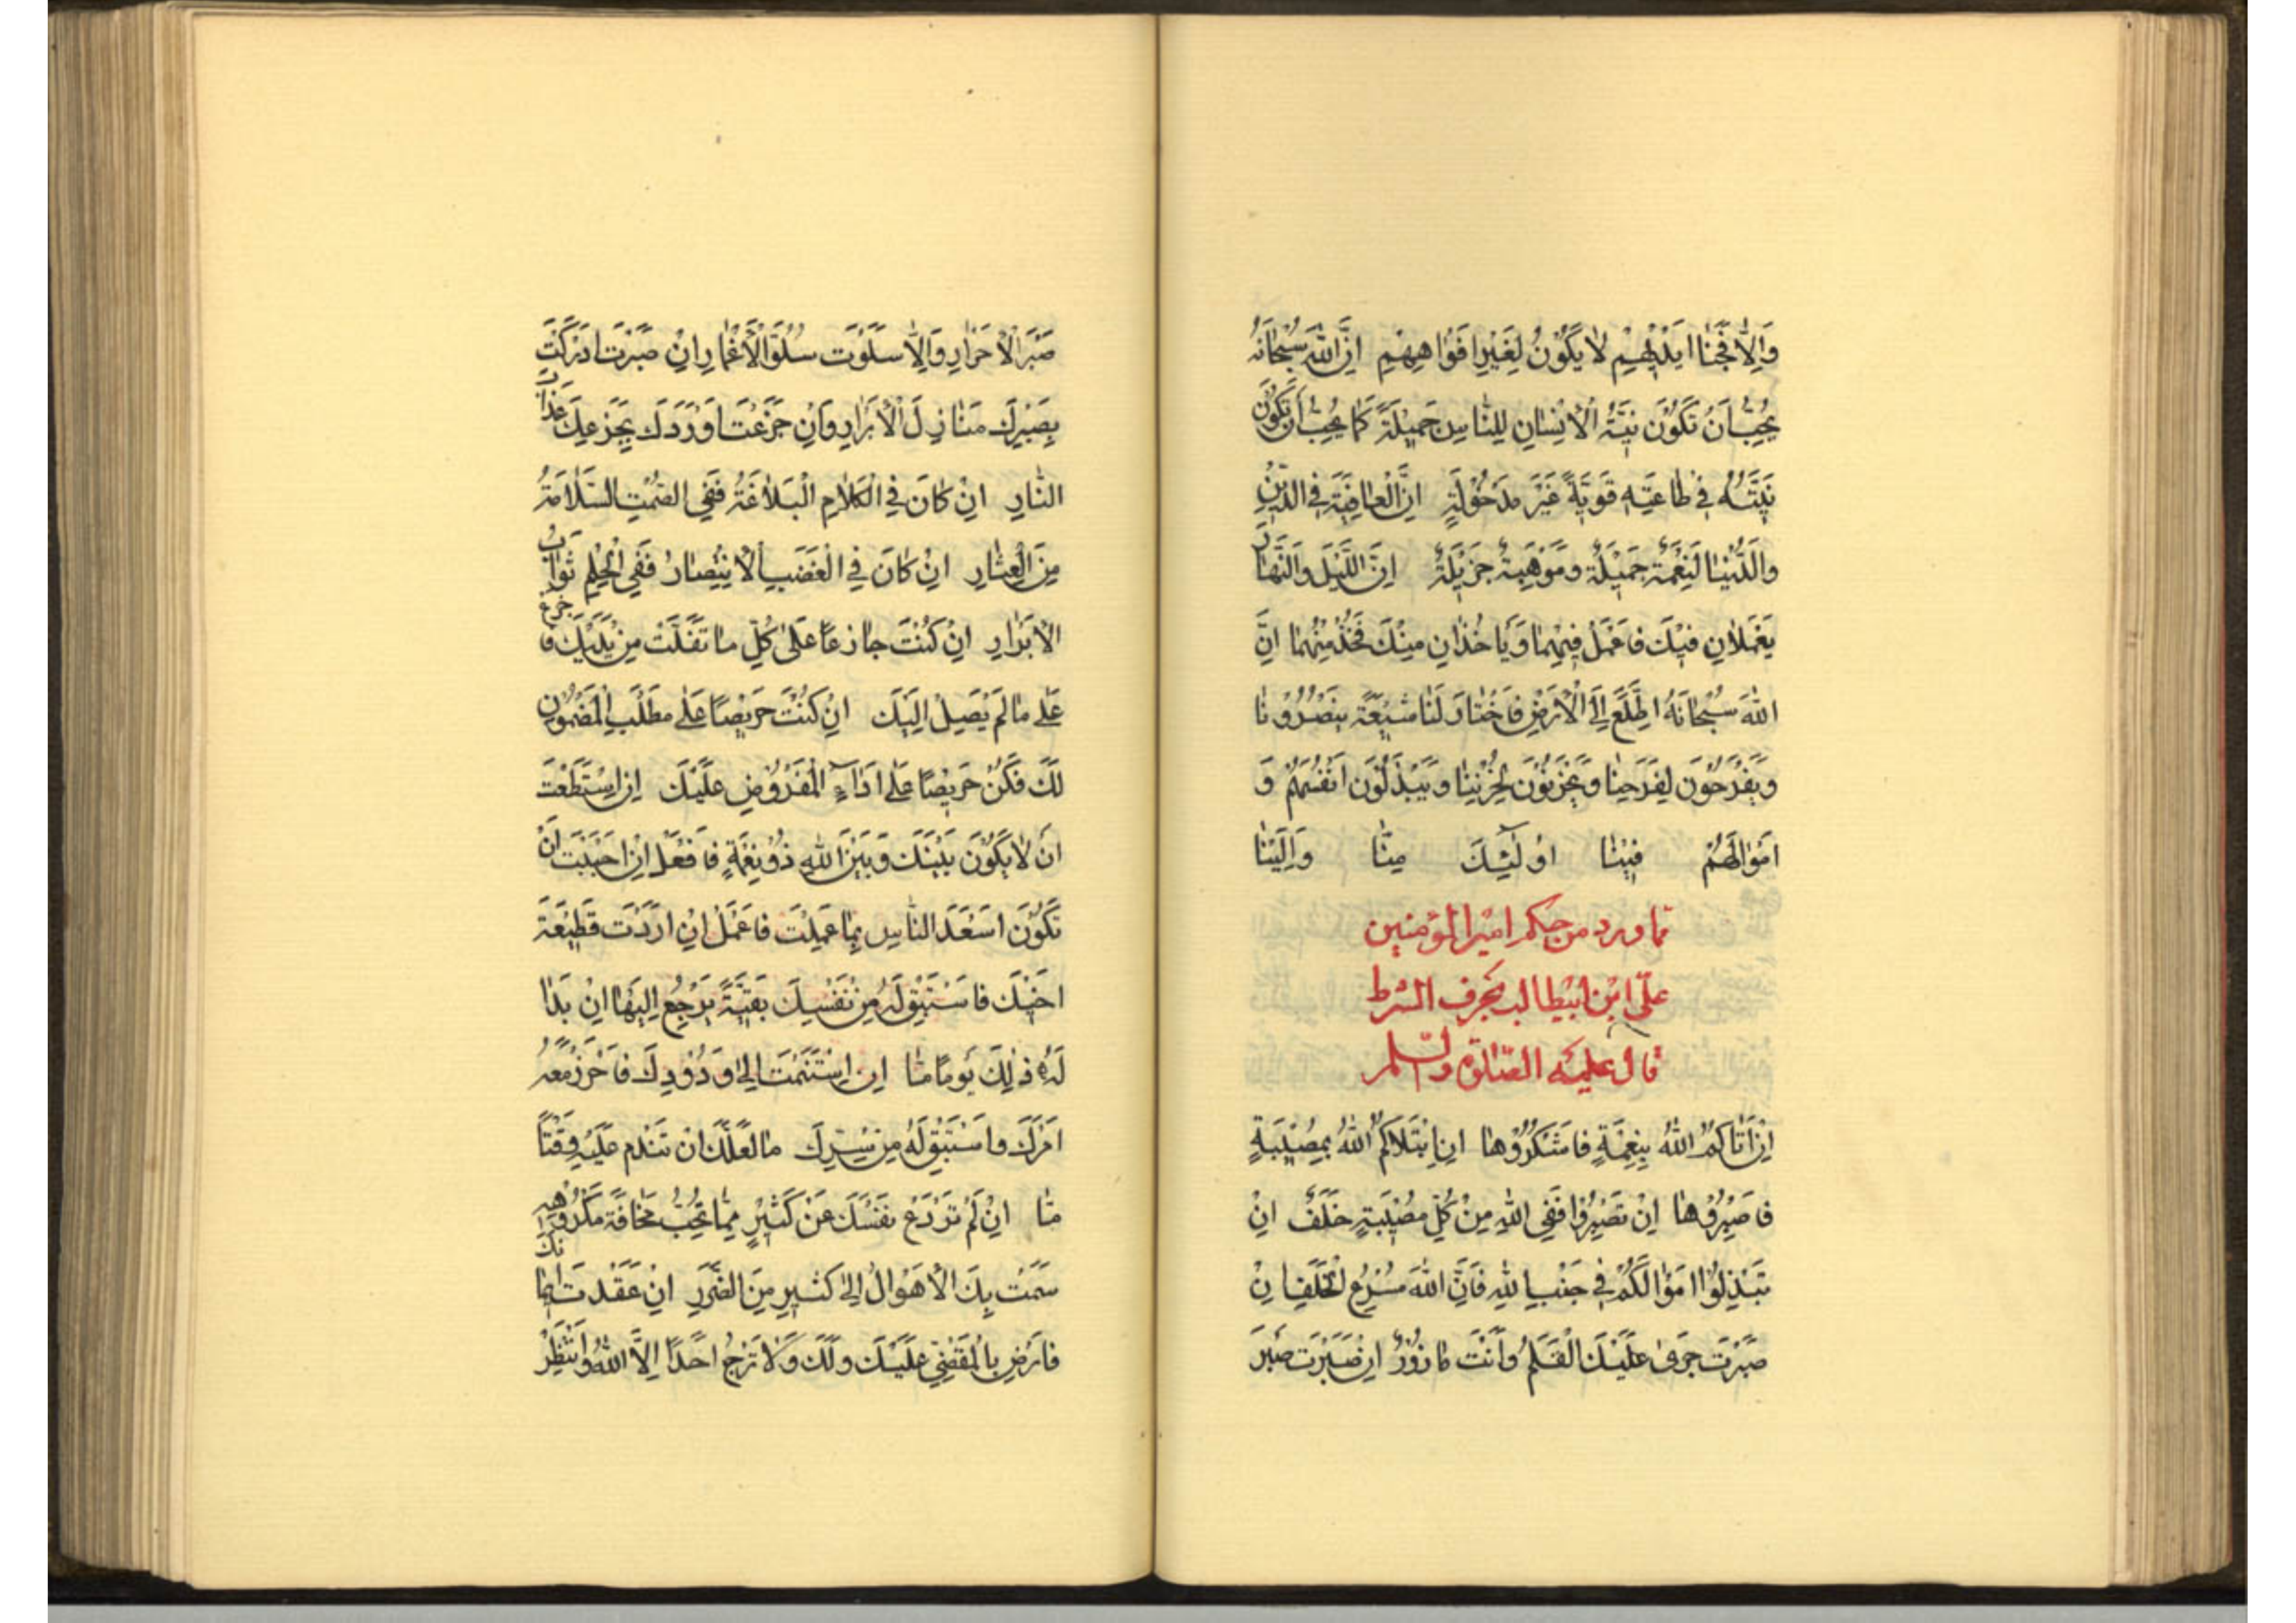 وَاِلّٰا فَجَنَا اَيْدِيْهِمْ لٰا يَكُوْنُ لِغَيْرِ اَفْوٰاهِهِمْ اِنَّ اللّٰهَ سُبْحٰانَهُ
يُحِبُّ اَنْ تَكُوْنَ نِيَّةُ الْاِنْسٰانِ لِلنّٰاسِ جَمِيْلَةً كَمٰا يُحِبُّ اَنْ تَكُوْنَ
نِيَّتُهُ فِيْ طٰاعَتِهِ قَوِيَّةً غَيْرَ مَدْخُوْلَةٍ اِنَّ الْعٰافِيَةَ فِي الدِّيْنِ
وَالدُّنْيٰا لَنِعْمَةٌ جَمِيْلَةٌ وَمَوْهِبَةٌ جَزِيْلَةٌ اِنَّ اللَّيْلَ وَالنَّهٰارَ
يَعْمَلٰانِ فِيْكَ فَاعْمَلْ فِيْهِمٰا وَيَأْخُذٰانِ مِنْكَ فَخُذْ مِنْهُمٰا اِنَّ
اللّٰهَ سُبْحٰانَهُ اطَّلَعَ اِلَى الْاَرْضِ فَاخْتٰارَ لَنٰا شِيْعَةً يَنْصُرُوْنٰا
وَيَفْرَحُوْنَ لِفَرَحِنٰا وَيَحْزَنُوْنَ لِحُزْنِنٰا وَيَبْذُلُوْنَ اَنْفُسَهُمْ وَ
اَمْوٰالَهُمْ فِيْنٰا اُولٰٓئِكَ مِنّٰا وَاِلَيْنٰا
مما ورد من حكم امير المؤمنين
علىّ ابن ابيطالب بحرف الشرط
قال عليه الصّلوة والسّلم
اِنْ اَتٰاكُمُ اللّٰهُ بِنِعْمَةٍ فَاشْكُرُوْهٰا اِنِ ابْتَلاٰكُمُ اللّٰهُ بِمُصِيْبَةٍ
فَاصْبِرُوْهٰا اِنْ تَصْبِرُوْا فَفِي اللّٰهِ مِنْ كُلِّ مُصِيْبَةٍ خَلَفٌ اِنْ
تَبْذُلُوْا اَمْوٰالَكُمْ فِيْ جَنْبِ اللّٰهِ فَاِنَّ اللّٰهَ مُسْرِعُ الْخَلَفِ اِنْ
صَبَرْتَ جَرٰى عَلَيْكَ الْقَلَمُ وَاَنْتَ مٰازُوْرٌ اِنْ صَبَرْتَ صَبْرَ
صَبْرَ الْاَحْرٰارِ وَاِلّٰا سَلَوْتَ سُلُوَّ الْاَغْمٰارِ اِنْ صَبَرْتَ اَدْرَكْتَ
بِصَبْرِكَ مَنٰازِلَ الْاَبْرٰارِ وَاِنْ جَزَعْتَ اَوْرَدَكَ جَزَعُكَ عَذٰابَ
النّٰارِ اِنْ كٰانَ فِي الْكَلٰامِ الْبَلٰاغَةُ فَفِي الصَّمْتِ السَّلٰامَةُ
مِنَ الْعِثٰارِ اِنْ كٰانَ فِي الْغَضَبِ الْاِنْتِصٰارُ فَفِي الْحِلْمِ ثَوٰابُ
الْاَبْرٰارِ اِنْ كُنْتَ جٰازِعًا عَلٰى كُلِّ مٰا تَفَلَّتَ مِنْ يَدَيْكَ فَاجْزَعْ
عَلٰى مٰا لَمْ يَصِلْ اِلَيْكَ اِنْ كُنْتَ حَرِيْصًا عَلٰى مَطْلَبِ الْمَضْمُوْنِ
لَكَ فَكُنْ حَرِيْصًا عَلٰى اَدٰآءِ الْمَفْرُوْضِ عَلَيْكَ اِنِ اسْتَطَعْتَ
اَنْ لٰا يَكُوْنَ بَيْنَكَ وَبَيْنَ اللّٰهِ ذُوْ نِعْمَةٍ فَافْعَلْ اِنْ اَحْبَبْتَ اَنْ
تَكُوْنَ اَسْعَدَ النّٰاسِ بِمٰا عَمِلْتَ فَاعْمَلْ اِنْ اَرَدْتَ قَطِيْعَةَ
اَخِيْكَ فَاسْتَبْقِ لَهُ مِنْ نَفْسِكَ بَقِيَّةً يَرْجِعُ اِلَيْهٰا اِنْ بَدٰا
لَهُ ذٰلِكَ يَوْمًا مٰا اِنِ اسْتَنَمْتَ اِلٰى وَدُوْدِكَ فَاَحْرِزْ مَعَهُ
اَمْرَكَ وَاسْتَبْقِ لَهُ مِنْ سِرِّكَ مٰا لَعَلَّكَ اَنْ تَنْدَمَ عَلَيْهِ وَقْتًا
مّٰا اِنْ لَمْ تَرْدَعْ نَفْسَكَ عَنْ كَثِيْرٍ مِمّٰا تُحِبُّ مَخٰافَةَ مَكْرُوْهِهِ
سَمَتْ بِكَ الْاَهْوٰالُ اِلٰى كَثِيْرٍ مِنَ الضَّرَرِ اِنْ عَقَدْتَ اَيْمٰانَكَ
فَارْضِ بِالْمَقْضِيِّ عَلَيْكَ وَلَكَ وَلٰا تَرْجُ اَحَدًا اِلَّا اللّٰهَ وَانْتَظِرْ